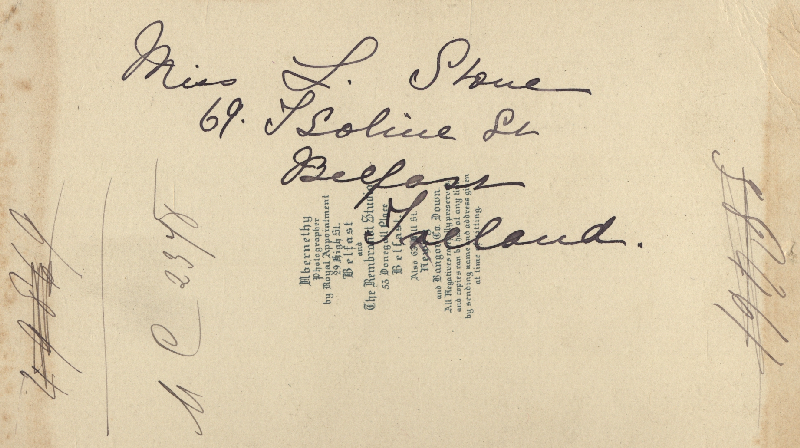 Miss L. Stone
69. Isoline St
Belfast
Ireland.
Abernethy
Photographer
by Royal Appointment
29 High St.
Belfast
and
The Rembrandt Studio
55 Donegall Place
Belfast
Also 63 Hill St.
Newry
and Bangor Co. Down
All Negatives preserved
and copies can be had at any time
by sending name and address given
at time sitting.